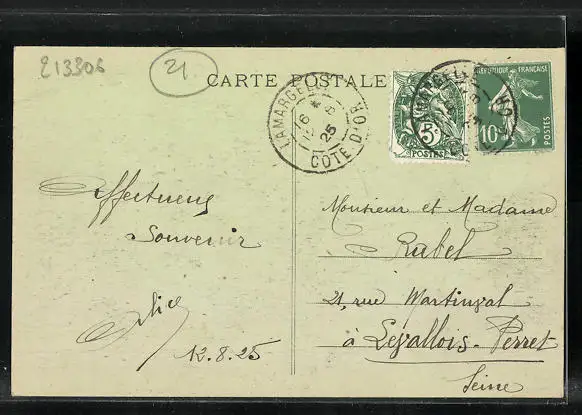 213306
21
CARTE POSTALE
LAMARGELLE
16 *
8
25
COTE D'OR
5c
POSTES
REPUBLIQUE FRANÇAISE
10c
POSTES
Affectueux
Souvenir
Alice
12.8.25
Monsieur et Madame
Rabel
21, rue Martinval
à Levallois-Perret
Seine